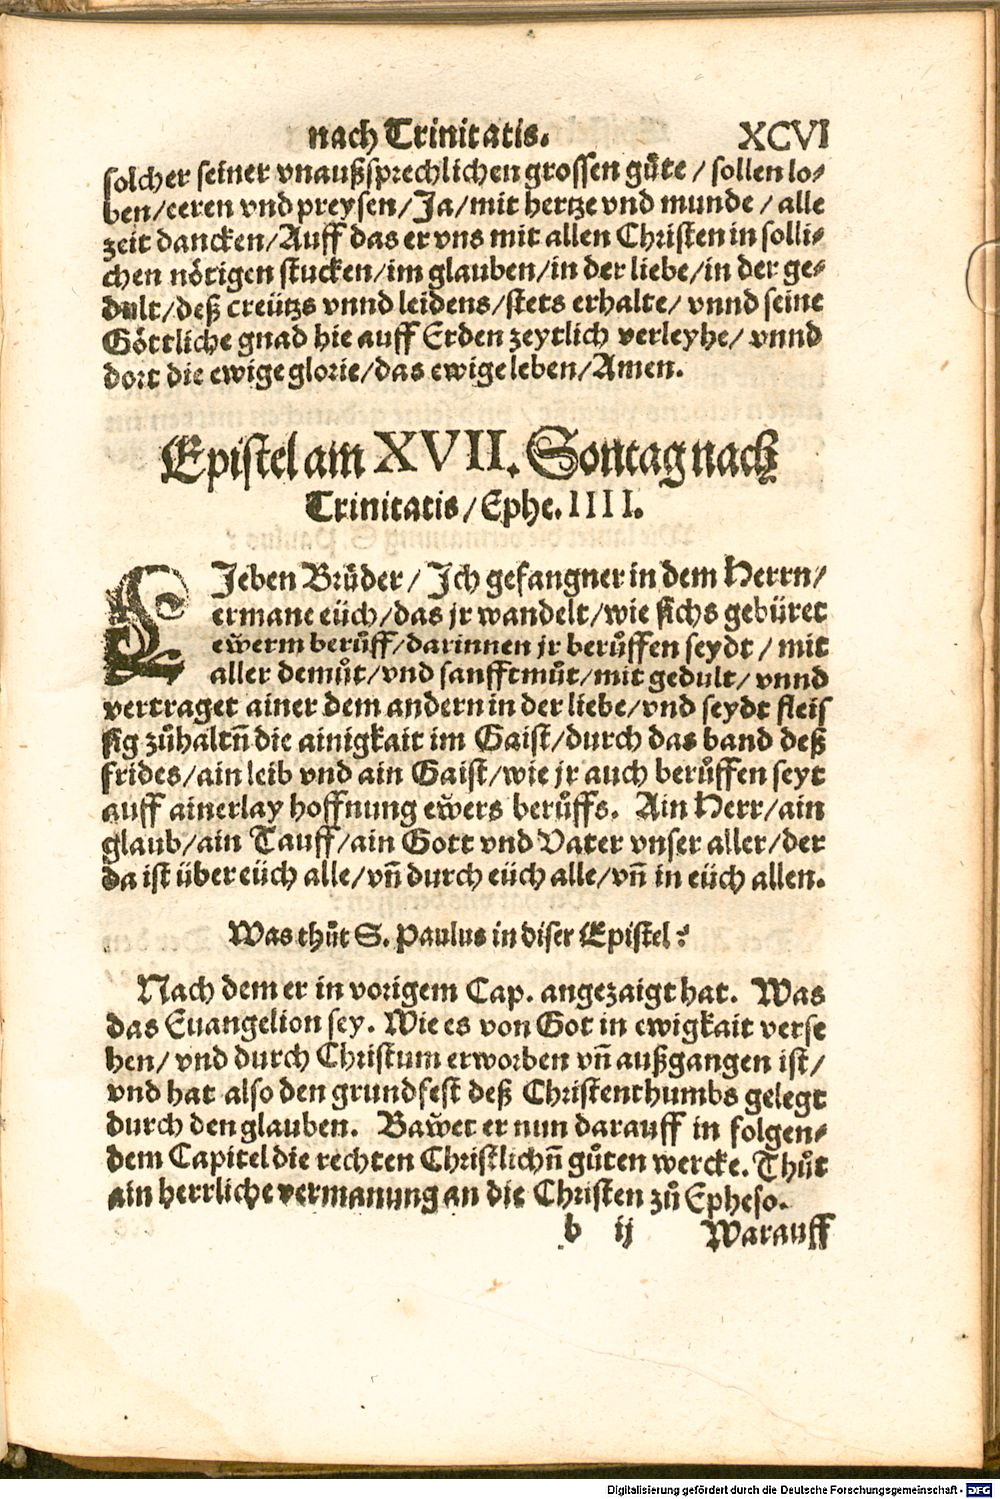 nach Trinitatis. XCVI
solcher seiner vnaußsprechlichen grossen güte / sollen lo⸗
ben/eeren vnd preysen/Ja/mit hertze vnd munde / alle
zeit dancken/Auff das er vns mit allen Christen in solli⸗
chen nötigen stucken/im glauben/in der liebe/in der ge⸗
dult/deß creützs vnnd leidens/stets erhalte/ vnnd seine
Göttliche gnad hie auff Erden zeytlich verleyhe/ vnnd
dort die ewige glorie/das ewige leben/Amen.
Epistel am XVII. Sontag nach
Trinitatis/Ephe. IIII.
LJeben Brüder / Jch gefangner in dem Herrn/
ermane eüch/das jr wandelt/wie sichs gebüret
eẅerm berůff/darinnen jr berůffen seydt / mit
aller demůt/vnd sanfftmůt/mit gedult/ vnnd
vertraget ainer dem andern in der liebe/vnd seydt fleis
sig zůhaltñ die ainigkait im Gaist/durch das band deß
frides/ain leib vnd ain Gaist/wie jr auch berůffen seyt
auff ainerlay hoffnung eẅers berůffs. Ain Herr/ain
glaub/ain Tauff/ain Gott vnd Vater vnser aller/der
da ist über eüch alle/vñ durch eüch alle/vñ in eüch allen.
Was thůt S. Paulus in diser Epistel?
Nach dem er in vorigem Cap. angezaigt hat. Was
das Euangelion sey. Wie es von Got in ewigkait verse
hen/ vnd durch Christum erworben vñ außgangen ist/
vnd hat also den grundfest deß Christenthumbs gelegt
durch den glauben. Baẅet er nun darauff in folgen⸗
dem Capitel die rechten Christlichñ gůten wercke. Thůt
ain herrliche vermanung an die Christen zů Epheso.
b ij Warauff
Digitalisierung gefördert durch die Deutsche Forschungsgemeinschaft - DFG